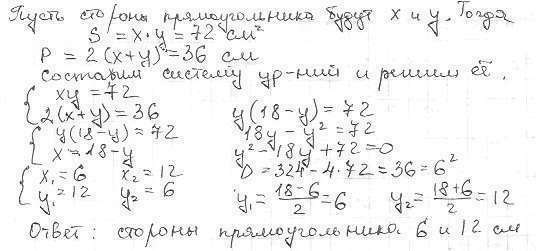 Пусть стороны прямоугольника будут x и y. Тогда
S = x·y = 72 см²
P = 2(x+y) = 36 см
Составим систему ур-ний и решим её.
{ xy = 72
2(x+y) = 36
{ y(18-y) = 72
x = 18-y
{ x₁ = 6 x₂ = 12
y₁ = 12 y₂ = 6
y(18-y) = 72
18y - y² = 72
y² - 18y + 72 = 0
D = 324 - 4·72 = 36 = 6²
y₁ = (18-6)/2 = 6 y₂ = (18+6)/2 = 12
Ответ: стороны прямоугольника 6 и 12 см